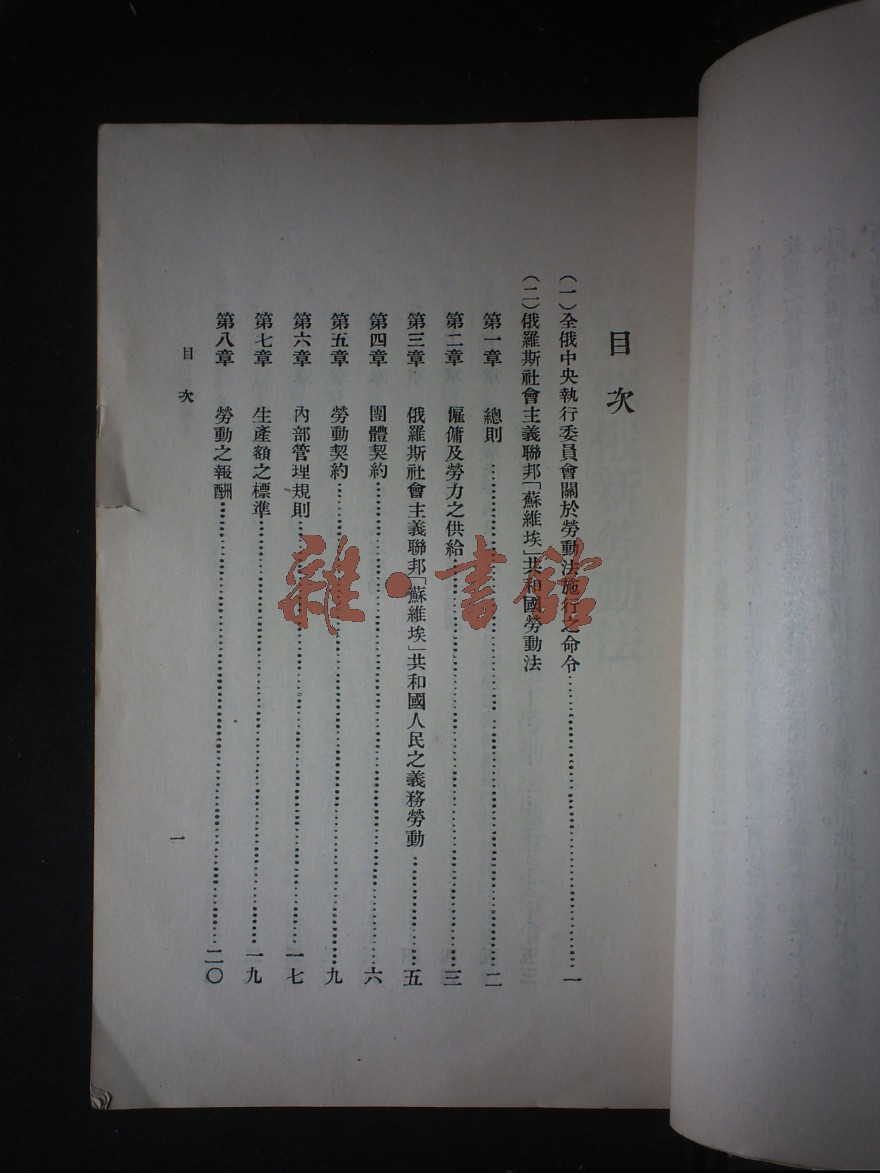 目次
(一)全俄中央執行委員會關於勞動法施行之命令……………………一
(二)俄羅斯社會主義聯邦「蘇維埃」共和國勞動法
第一章 總則……………………二
第二章 僱傭及勞力之供給……………………三
第三章 俄羅斯社會主義聯邦「蘇維埃」共和國人民之義務勞動……………………五
第四章 團體契約……………………六
第五章 勞動契約……………………九
第六章 內部管理規則……………………一七
第七章 生產額之標準……………………一九
第八章 勞動之報酬……………………二〇
目次 一
雜·書館